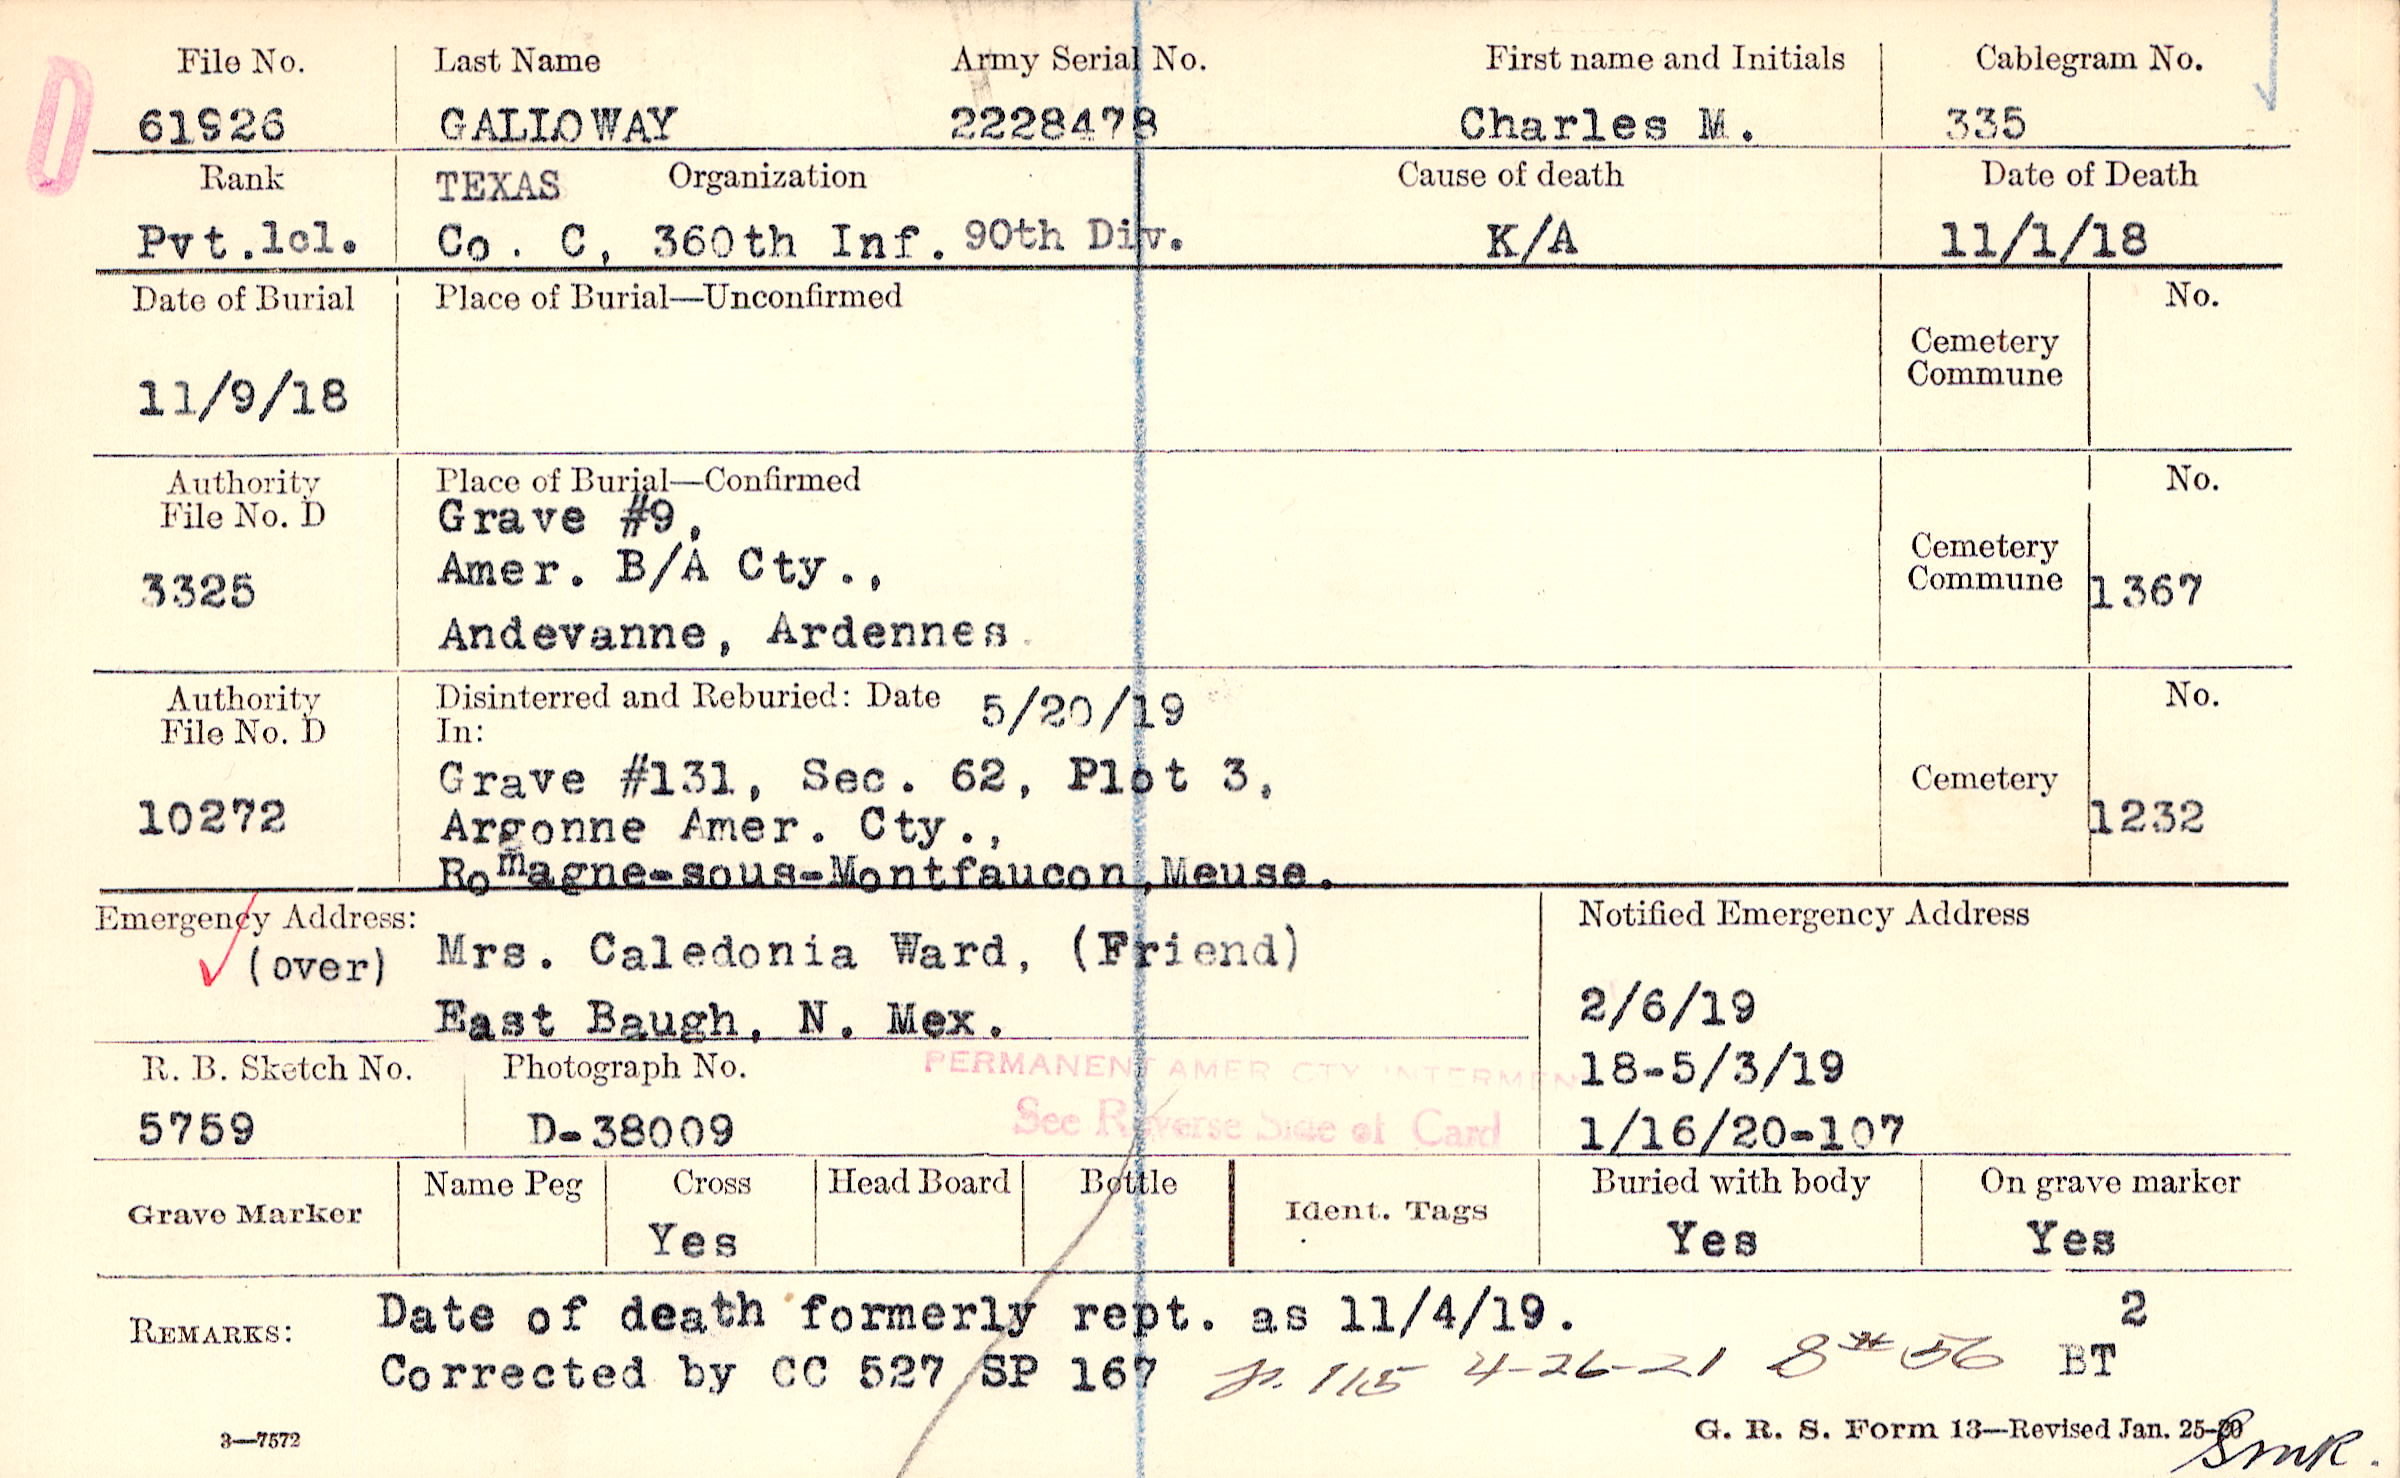 File No. Last Name Army Serial No. First name and Initials Cablegram No.
61926 GALLOWAY 2228478 Charles M. 335
Rank TEXAS Organization Cause of death Date of Death
Pvt.lcl. Co. C, 360th Inf. 90th Div. K/A 11/1/18
Date of Burial Place of Burial—Unconfirmed No.
Cemetery
Commune
11/9/18
Authority Place of Burial—Confirmed No.
File No. D Grave #9,
Cemetery
Amer. B/A Cty.,
3325 Commune 1367
Andevanne, Ardennes.
Authority Disinterred and Reburied: Date 5/20/19 No.
File No. D In:
Grave #131, Sec. 62, Plot 3, Cemetery
10272 Argonne Amer. Cty., 1232
Romagne-sous-Montfaucon,Meuse.
Emergency Address: Notified Emergency Address
(over) Mrs. Caledonia Ward, (Friend)
East Baugh, N. Mex. 2/6/19
R. B. Sketch No. Photograph No. PERMANENT AMER CTY INTERMENT 18-5/3/19
5759 D-38009 See Reverse Side of Card 1/16/20-107
Grave Marker Name Peg Cross Head Board Bottle Ident. Tags Buried with body On grave marker
Yes Yes Yes
REMARKS: Date of death formerly rept. as 11/4/19. 2
Corrected by CC 527 SP 167 p. 115 4-26-21 56 BT
3—7572 G. R. S. Form 13—Revised Jan. 25-20
SMK.